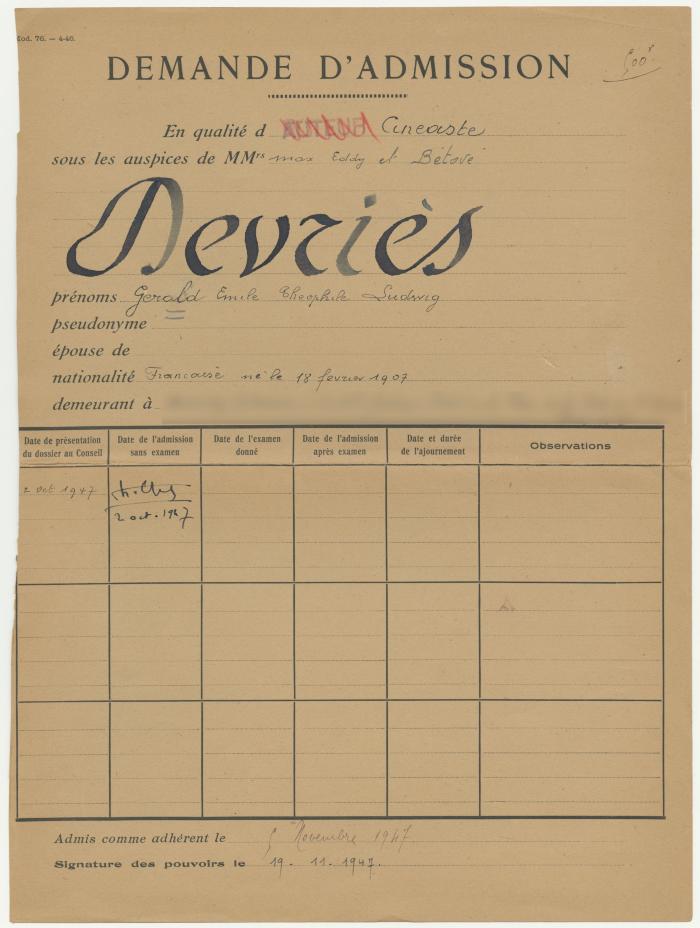 Cod. 76. — 4-46.
500 F
DEMANDE D'ADMISSION
En qualité d AUTEUR Cineaste
sous les auspices de MMrs max Eddy et Bétove
Devriès
prénoms Gerald Emile Théophile Ludwig
pseudonyme
épouse de
nationalité Francaise né le 18 fevrier 1907
demeurant à
Date de présentation du dossier au Conseil
Date de l'admission sans examen
Date de l'examen donné
Date de l'admission après examen
Date et durée de l'ajournement
Observations
2 oct 1947
2 oct. 1947
Admis comme adhérent le 5 Novembre 1947
Signature des pouvoirs le 19. 11. 1947.